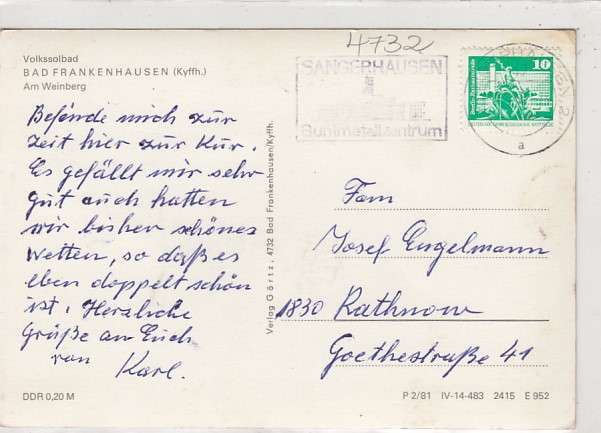 4732
Volkssolbad
BAD FRANKENHAUSEN (Kyffh.)
Am Weinberg
SANGERHAUSEN
Buntmetallzentrum
10
a
Befinde mich zur
Zeit hier zur Kur.
Es gefällt mir sehr
gut auch hatten
wir bisher schönes
Wetter, so daß es
eben doppelt schön
ist. Herzliche
Grüße an Euch
von Karl.
Verlag Görtz, 4732 Bad Frankenhausen/Kyffh.
Fam
Josef Engelmann
1830 Rathnow
Goethestruße 41
DDR 0,20 M
P 2/81 IV-14-483 2415 E 952